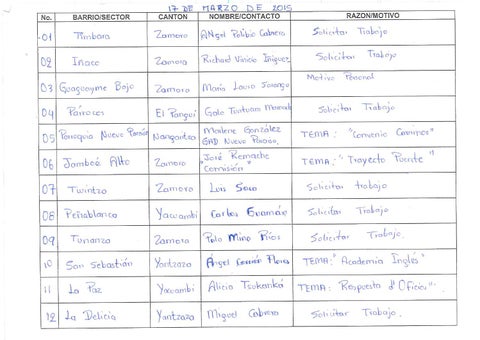 17 DE MARZO DE 2015
No. BARRIO/SECTOR CANTON NOMBRE/CONTACTO RAZON/MOTIVO
01 Timbara Zamora Angel Polibio Cabrera Solicitar Trabajo
02 Zamora Richard Vinicio Iñiguez Solicitar Trabajo
03 Guaguayme Bajo Zamora Maria Laura Motivo Personal
04 El Pangui Galo Solicitar Trabajo
05 Parroquia Nuevo Paraiso Nangaritza Marlene González TEMA: "Convenio Caminos"
GAD Nuevo Paraiso
06 Jamboé Alto Zamora "José Remache TEMA: "Trayecto Puente"
Comisión"
07 Zamora Luis Soto Solicitar trabajo
08 Peñablanca Yacuambi Carlos Guamán Solicitar trabajo
09 Tunanza Zamora Polo Mino Ríos Solicitar Trabajo
10 San Sebastián Yantzaza Ángel Flores TEMA: "Academia Inglés"
11 La Paz Yacuambi Alicia TEMA: Respuesta d'Oficio".
12 La Delicia Yantzaza Miguel Cabrera Solicitar Trabajo.